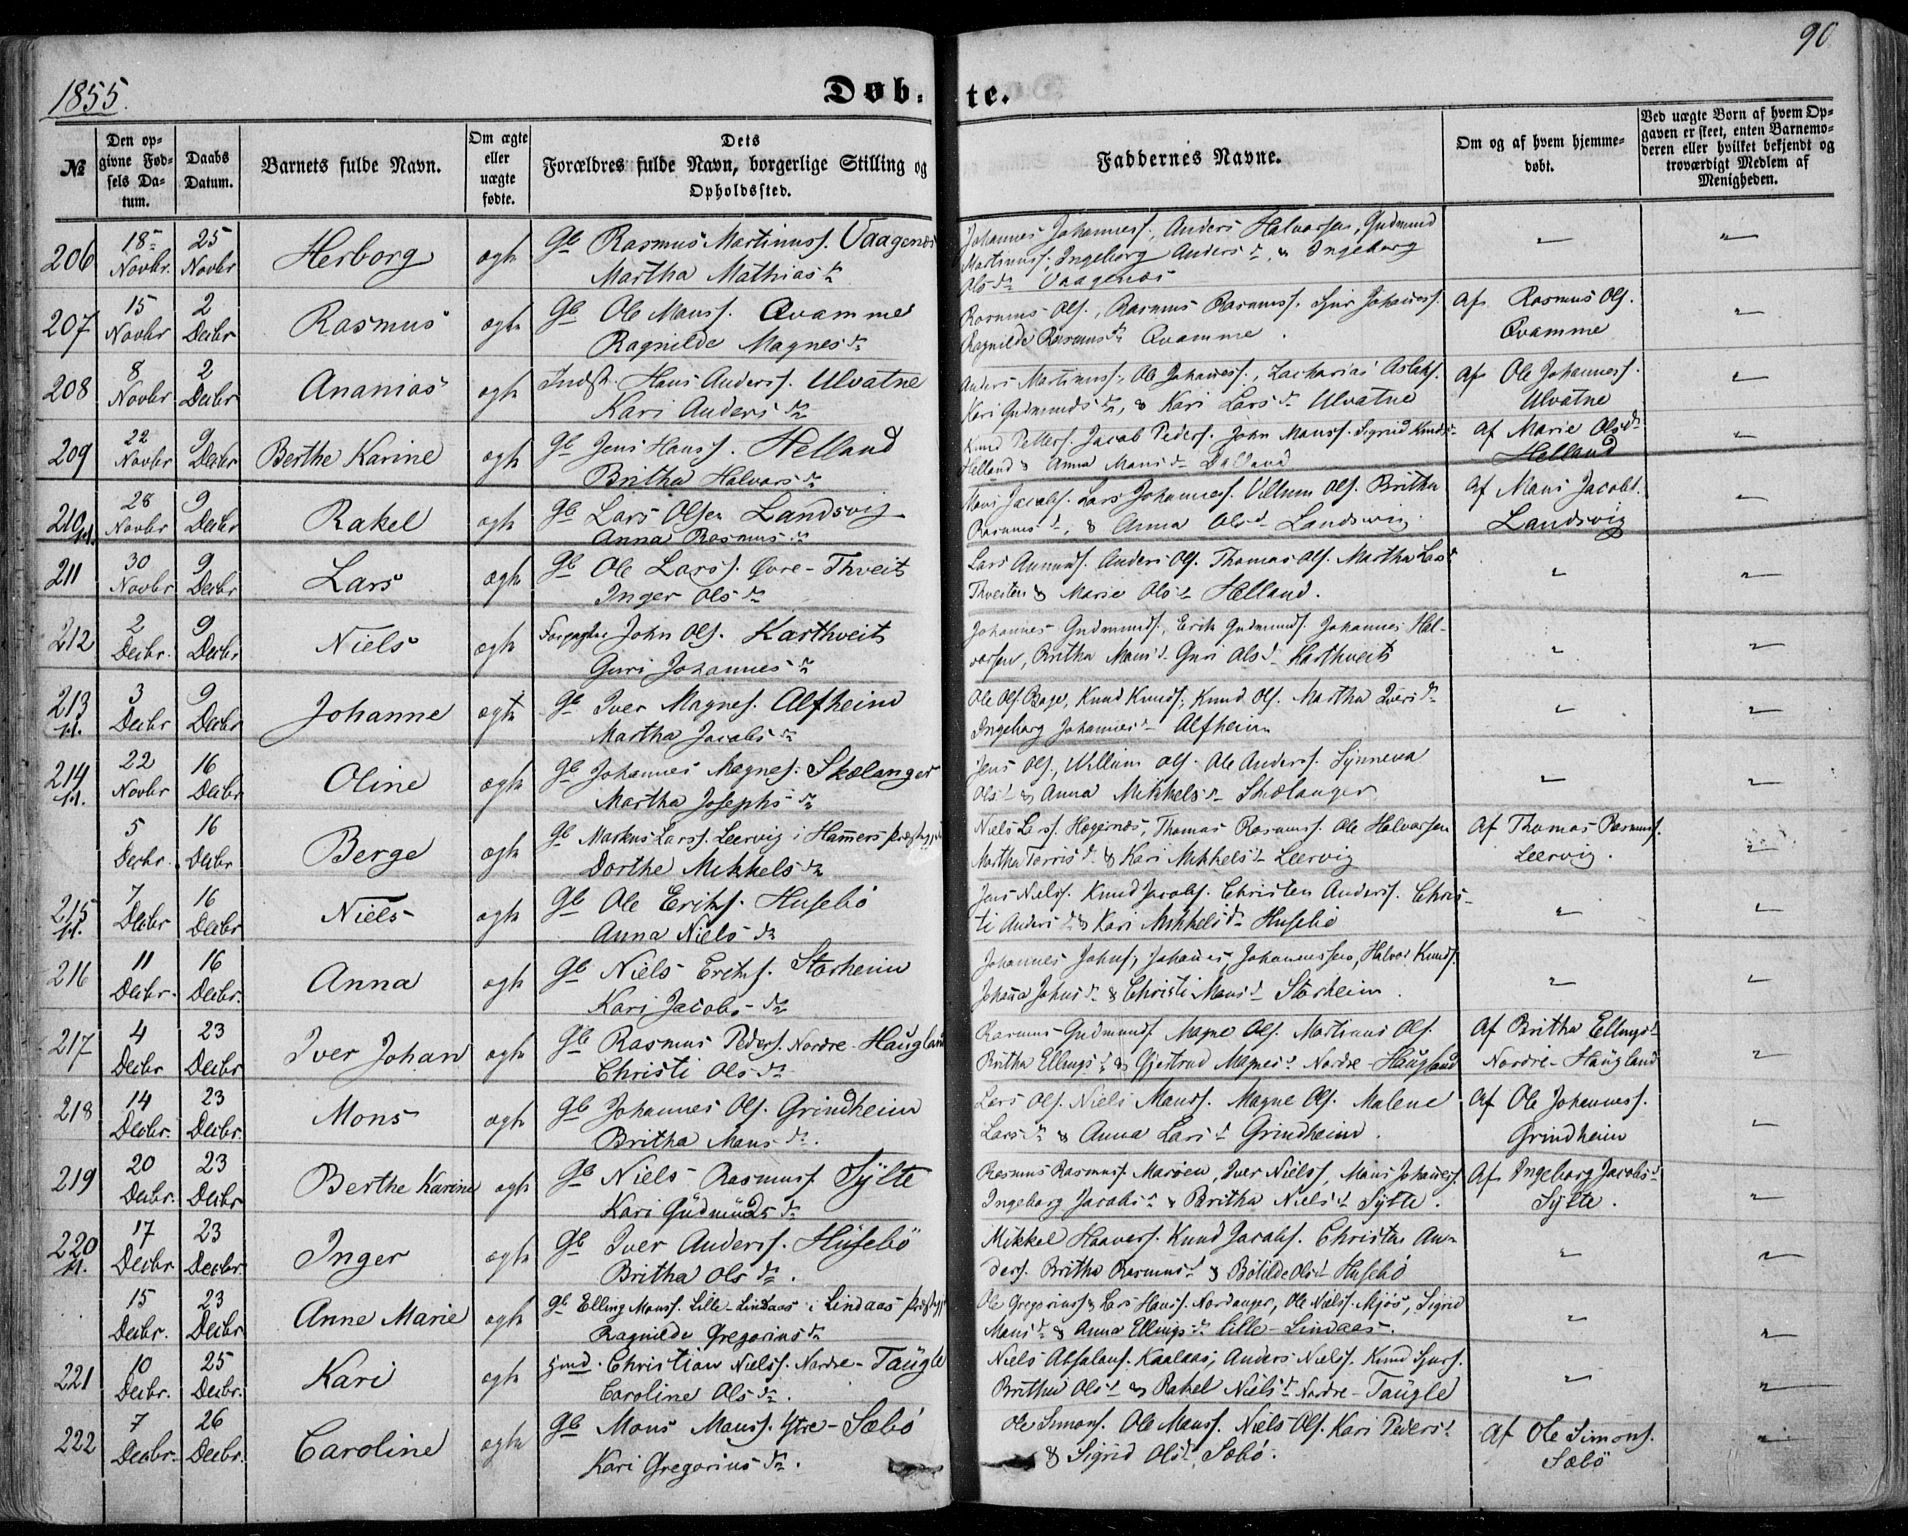 1855.
90
Døb-
te.
№
Den opgivne Fødsels Datum.
Daabs Datum.
Barnets fulde Navn.
Om ægte eller uægte fødte.
Dets Forældres fulde Navn, borgerlige Stilling og Opholdssted.
Faddernes Navne.
Om og af hvem hjemmedøbt.
Ved uægte Børn af hvem Opgaven er skeet, enten Barnemoderen eller hvilket bekjendt og troværdigt Medlem af Menigheden.
206 18 Novbr. 25 Novbr Herborg ægte Gb Rasmus Martinuss. Vaagenæs
Martha Mathiasdr
Johannes Johanness., Anders Halvorsen, Gudmund
Martinuss., Ingeborg Andersdr & Ingeborg
Olsdr Vaagenæs
207 15 Novbr 2 Decbr Rasmus ægte Gb Ole Monss. Qvamme
Ragnilde Magnesdr
Rasmus Ols., Rasmus Rasmuss. Sjur Johaness.
Ragnilde Rasmusdr Qvamme.
Af Rasmus Ols.
Qvamme
208 8 Novbr 2 Decbr Ananias ægte Indst. Hans Anderss. Ulvatne
Kari Andersdr
Anders Martinuss. Ole Johaness., Zacharias Aslaks.
Kari Gudmundsdr, & Kari Larsdr Ulvatne
Af Ole Johanness.
Ulvatne
209 22 Novbr 9 Decbr Berthe Karine ægte Gb Jens Hanss. Helland
Britha Halvorsdr
Knud Petters. Jacob Peders. John Monss. Sigrid Knudsdr
Helland & Anna Monsdr Dalland
Af Marie Olsdr
Helland
210 28 Novbr 9 Decbr Rakel ægte Gb Lars Olsen Landsvig
Anna Rasmusdr
Mons Jacobs. Lars Johanness. Villum Ols. Britha
Rasmusdr, & Anna Olsdr Landsvig.
Af Mons Jacobs.
Landsvig
211 30 Novbr 9 Decbr Lars ægte Gb Ole Larss. Øvre-Thveit
Inger Olsdr
Lars Amunds. Anders Ols. Thomas Ols. Martha Larsdr
Thveiten & Marie Olsdr Helland.
212 2 Decbr. 9 Decbr Niels ægte Forpagter John Ols. Karthveit
Guri Johannesdr
Johannes Gudmunds., Erik Gudmunds. Johannes Hal-
vorsen, Britha Monsdr Guri Olsdr Karthveit
213 3 Decbr 9 Decbr Johanne ægte Gb Iver Magnes. Alfheim
Martha Jacobsdr
Ole Ols. Boge, Knud Knuds., Knud Ols. Martha Iversdr
Ingeborg Johannesdr Alfheim
214 22 Novbr 16 Decbr Oline ægte Gb Johannes Magnes. Skælanger
Martha Josephsdr
Jens Ols., Willum Ols. Ole Anderss. Synneva
Olsdr & Anna Mikkelsdr Skælanger
5 Decbr. 16 Decbr Berge ægte Gb Markus Larss. Leervig i Hammers Præstegj.
Dorthe Mikkelsdr
Niels Larss. Hagenæs, Thomas Rasmuss. Ole Halvorsen
Martha Torrisdr & Kari Mikkelsdr Leervig
Af Thomas Rasmuss.
Leervig.
215 7 Decbr 16 Decbr Niels ægte Gb Ole Eriks. Husebö
Anna Nielsdr
Jens Nielss. Knud Jacobs. Christen Anderss. Chris-
ti Andersdr & Kari Mikkelsdr Husebö
216 11 Decbr. 16 Decbr. Anna ægte Gb Niels Eriks. Storheim
Kari Jacobsdr
Johannes Johns., Johanes Johannessen, Halvor Knuds.
Johana Johnsdr & Christi Monsdr Storheim.
217 4 Decbr 23 Decbr Iver Johan ægte Gb Rasmus Peders. Nordre-Haugland
Christi Olsdr
Rasmus Gudmunds. Magne Ols. Martinus Ols.
Britha Ellingsdr & Gjertrud Magnesdr Nordre-Haugland
Af Britha Ellingsdr
Nordre-Haugland
218 14 Decbr. 23 Decbr. Mons ægte Gb Johannes Ols. Grindheim
Britha Monsdr.
Lars Ols. Niels Monss. Magne Ols. Malene
Larsdr & Anna Larsdr Grindheim.
Af Ole Johanness.
Grindheim
219 20 Decbr. 23 Decbr Berthe Karine ægte Gb Niels Rasmuss. Sylte
Kari Gudmundsdr
Rasmus Rasmuss. Marøen, Iver Nielss., Mons Johaness.
Ingeborg Jacobsdr & Britha Nielsdr Sylte.
Af Ingeborg Jacobsdr
Sylte.
220 17 Decbr 23 Decbr. Inger ægte Gb Iver Anderss. Husebö
Britha Olsdr.
Mikkel Haavars. Knud Jacobs. Christen An-
ders. Britha Rasmusdr & Botilde Olsdr Husebö
15 Decbr. 23 Decbr. Anne Marie ægte Gb Elling Monss. Lille-Lindaas i Lindaas Præstegj.
Ragnilde Gregoriusdr
Ole Gregoriuss. & Lars Hanss. Nordanger, Ole Nielss. Mjös, Sigrid
Monsdr & Anna Ellingsdr Lille-Lindaas.
221 10 Decbr. 25 Decbr. Kari ægte Huusmd. Christian Nielss. Nordre-Taugle
Caroline Olsdr.
Niels Absalons. Kaalaas, Anders Nielss. Knud Sjurs.
Britha Olsdr & Rakel Nielsdr Nordre-Taugle
222 7 Decbr. 26 Decbr. Caroline ægte Gb Mons Monss. Ytre-Sæbö
Kari Gregoriusdr.
Ole Simons. Ole Monss. Niels Ols. Kari Pedersdr
& Sigrid Olsdr Sæbö.
Af Ole Simons.
Sæbö